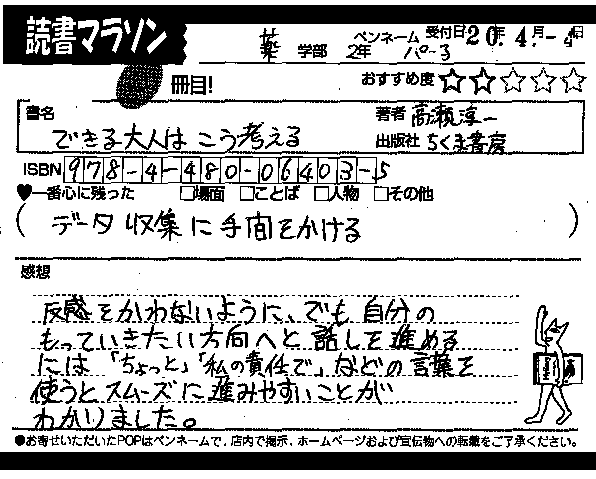 読書マラソン
薬 学部 2年 ペンネーム パーる 受付日 20年 4月-4日
冊目! おすすめ度☆☆☆☆☆
書名 著者 高瀬淳一
できる大人は こう考える 出版社 ちくま書房
ISBN 978-4-480-06403-5
♥一番心に残った □場面 □ことば □人物 □その他
( データ収集に手間をかける )
感想
反感をかわないように、でも自分の
もっていきたい方向へと話しを進める
には「ちょっと」「私の責任で」などの言葉を
使うとスムーズに進みやすいことが
わかりました。
●お寄せいただいたPOPはペンネームで、店内で掲示、ホームページおよび宣伝物への転載をご了承ください。